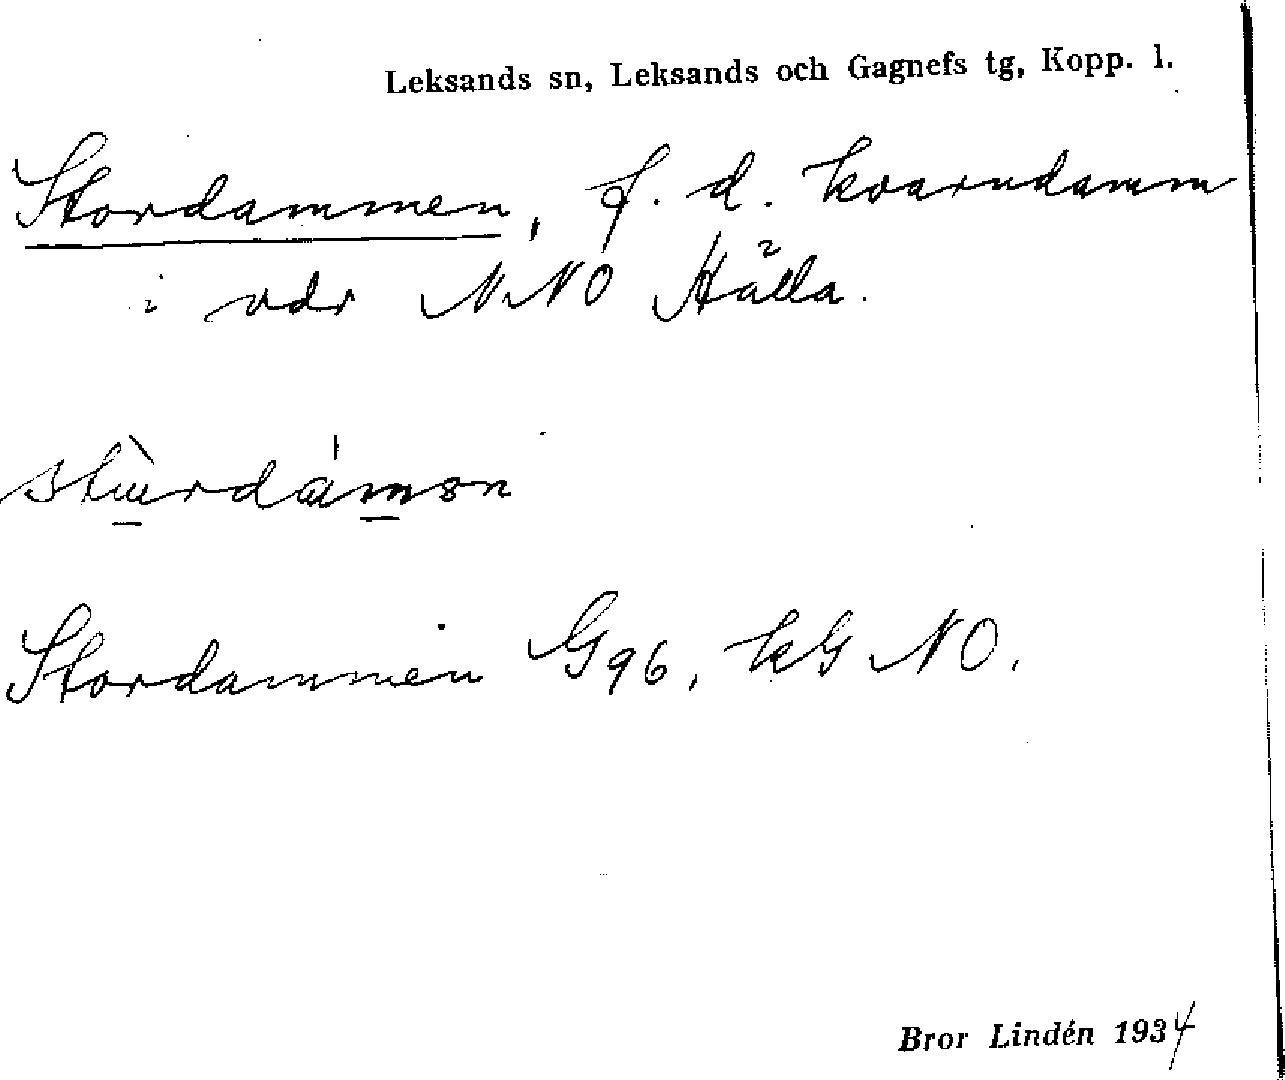 Leksands sn, Leksands och Gagnefs tg, Kopp. l.
Stordammen, f. d. kvarndamm
i vdr NNO Hälla.
Stordammen G96, kG NO.
Bror Lindén 1934